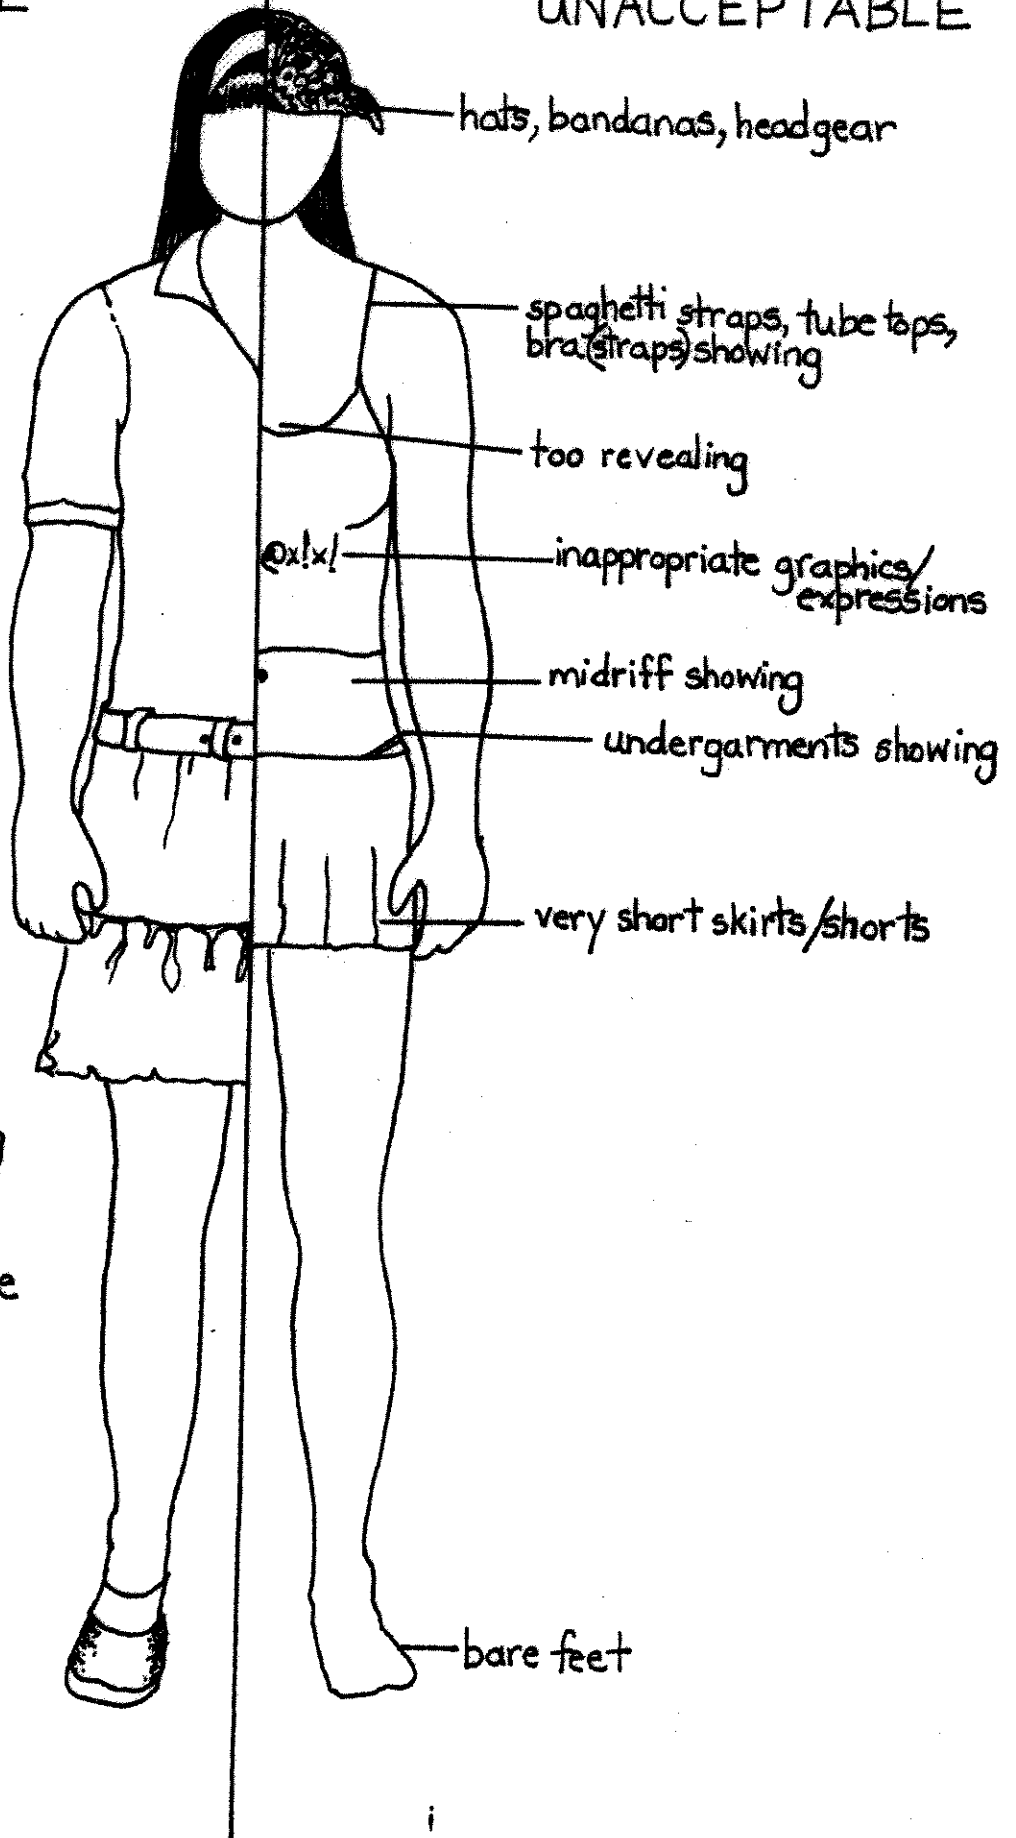 UNACCEPTABLE
hats, bandanas, headgear
spaghetti straps, tube tops,
bra(straps)showing
too revealing
@x!x!
inappropriate graphics/
expressions
midriff showing
undergarments showing
very short skirts/shorts
e
bare feet
i